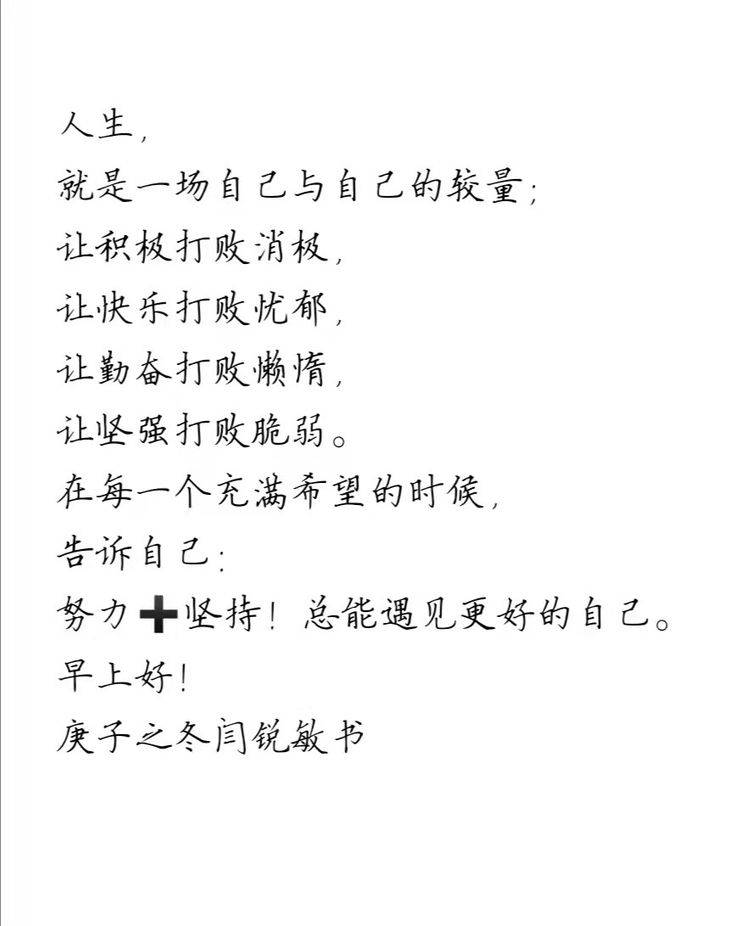 人生，
就是一场自己与自己的较量；
让积极打败消极，
让快乐打败忧郁，
让勤奋打败懒惰，
让坚强打败脆弱。
在每一个充满希望的时候，
告诉自己：
努力➕坚持！总能遇见更好的自己。
早上好！
庚子之冬闫锐敏书